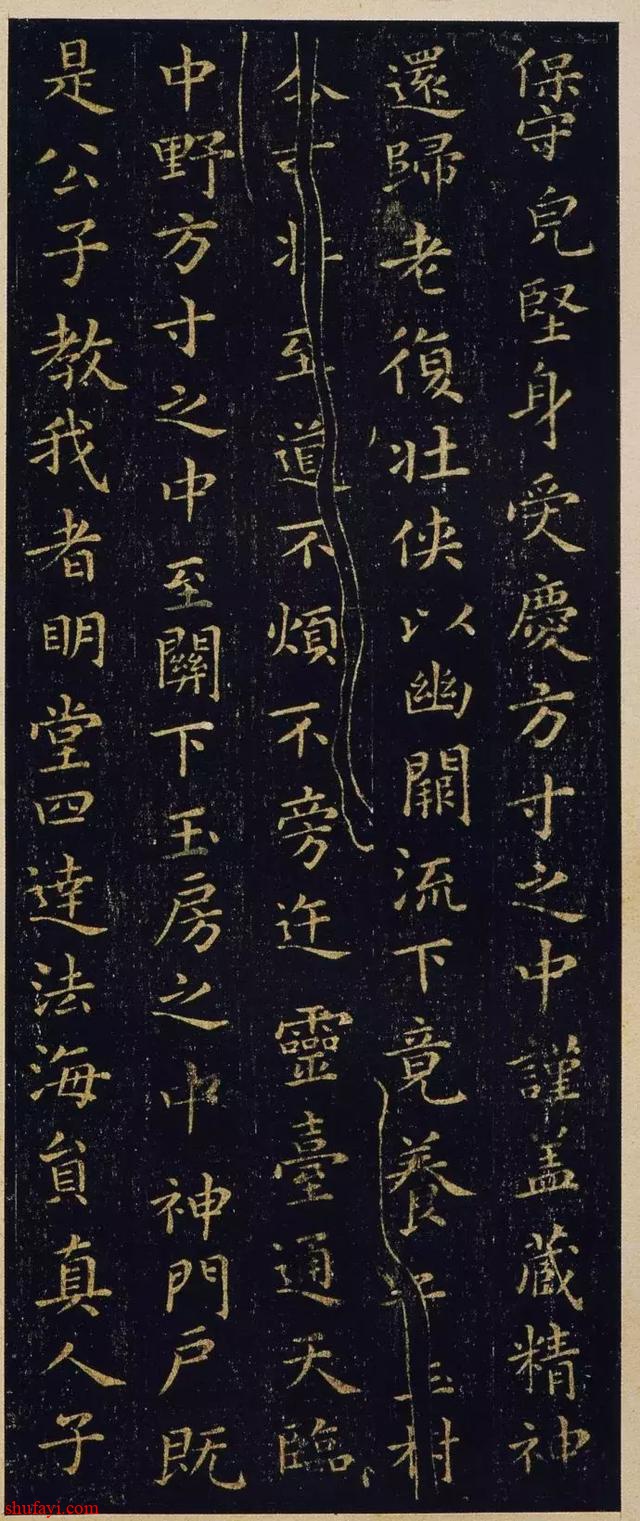 保守皃堅身受慶方寸之中謹盖藏精神
還歸老復壯俠以幽闕流下竟養子玉村
令可壯至道不煩不旁迕靈臺通天臨
中野方寸之中至關下玉房之中神門户既
是公子教我者明堂四達法海貟真人子
shufayi.com